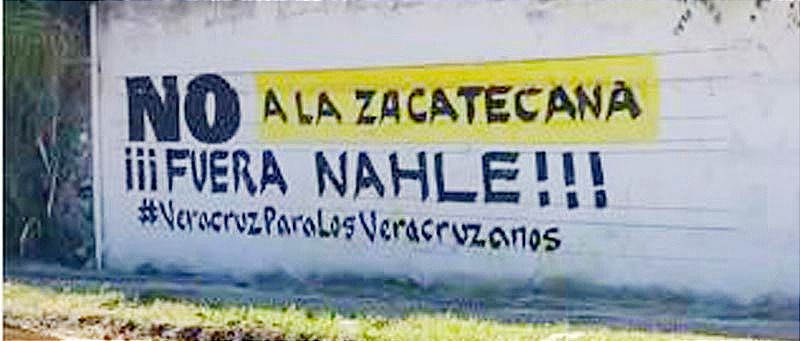 NO A LA ZACATECANA
¡¡¡FUERA NAHLE!!!
#VeracruzParaLosVeracruzanos